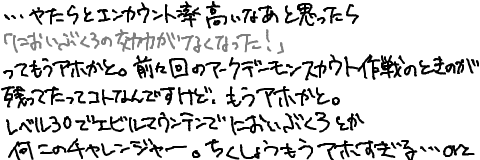 …やたらとエンカウント率高いなあと思ったら
「においぶくろの効力がなくなった！」
ってもうアホかと。前々回のアークデーモンスカウト作戦のときのが
残ってたってコトなんですけど、もうアホかと。
レベル30でエビルマウンテンでにおいぶくろとか
何このチャレンジャー。ちくしょうもうアホすぎる…orz